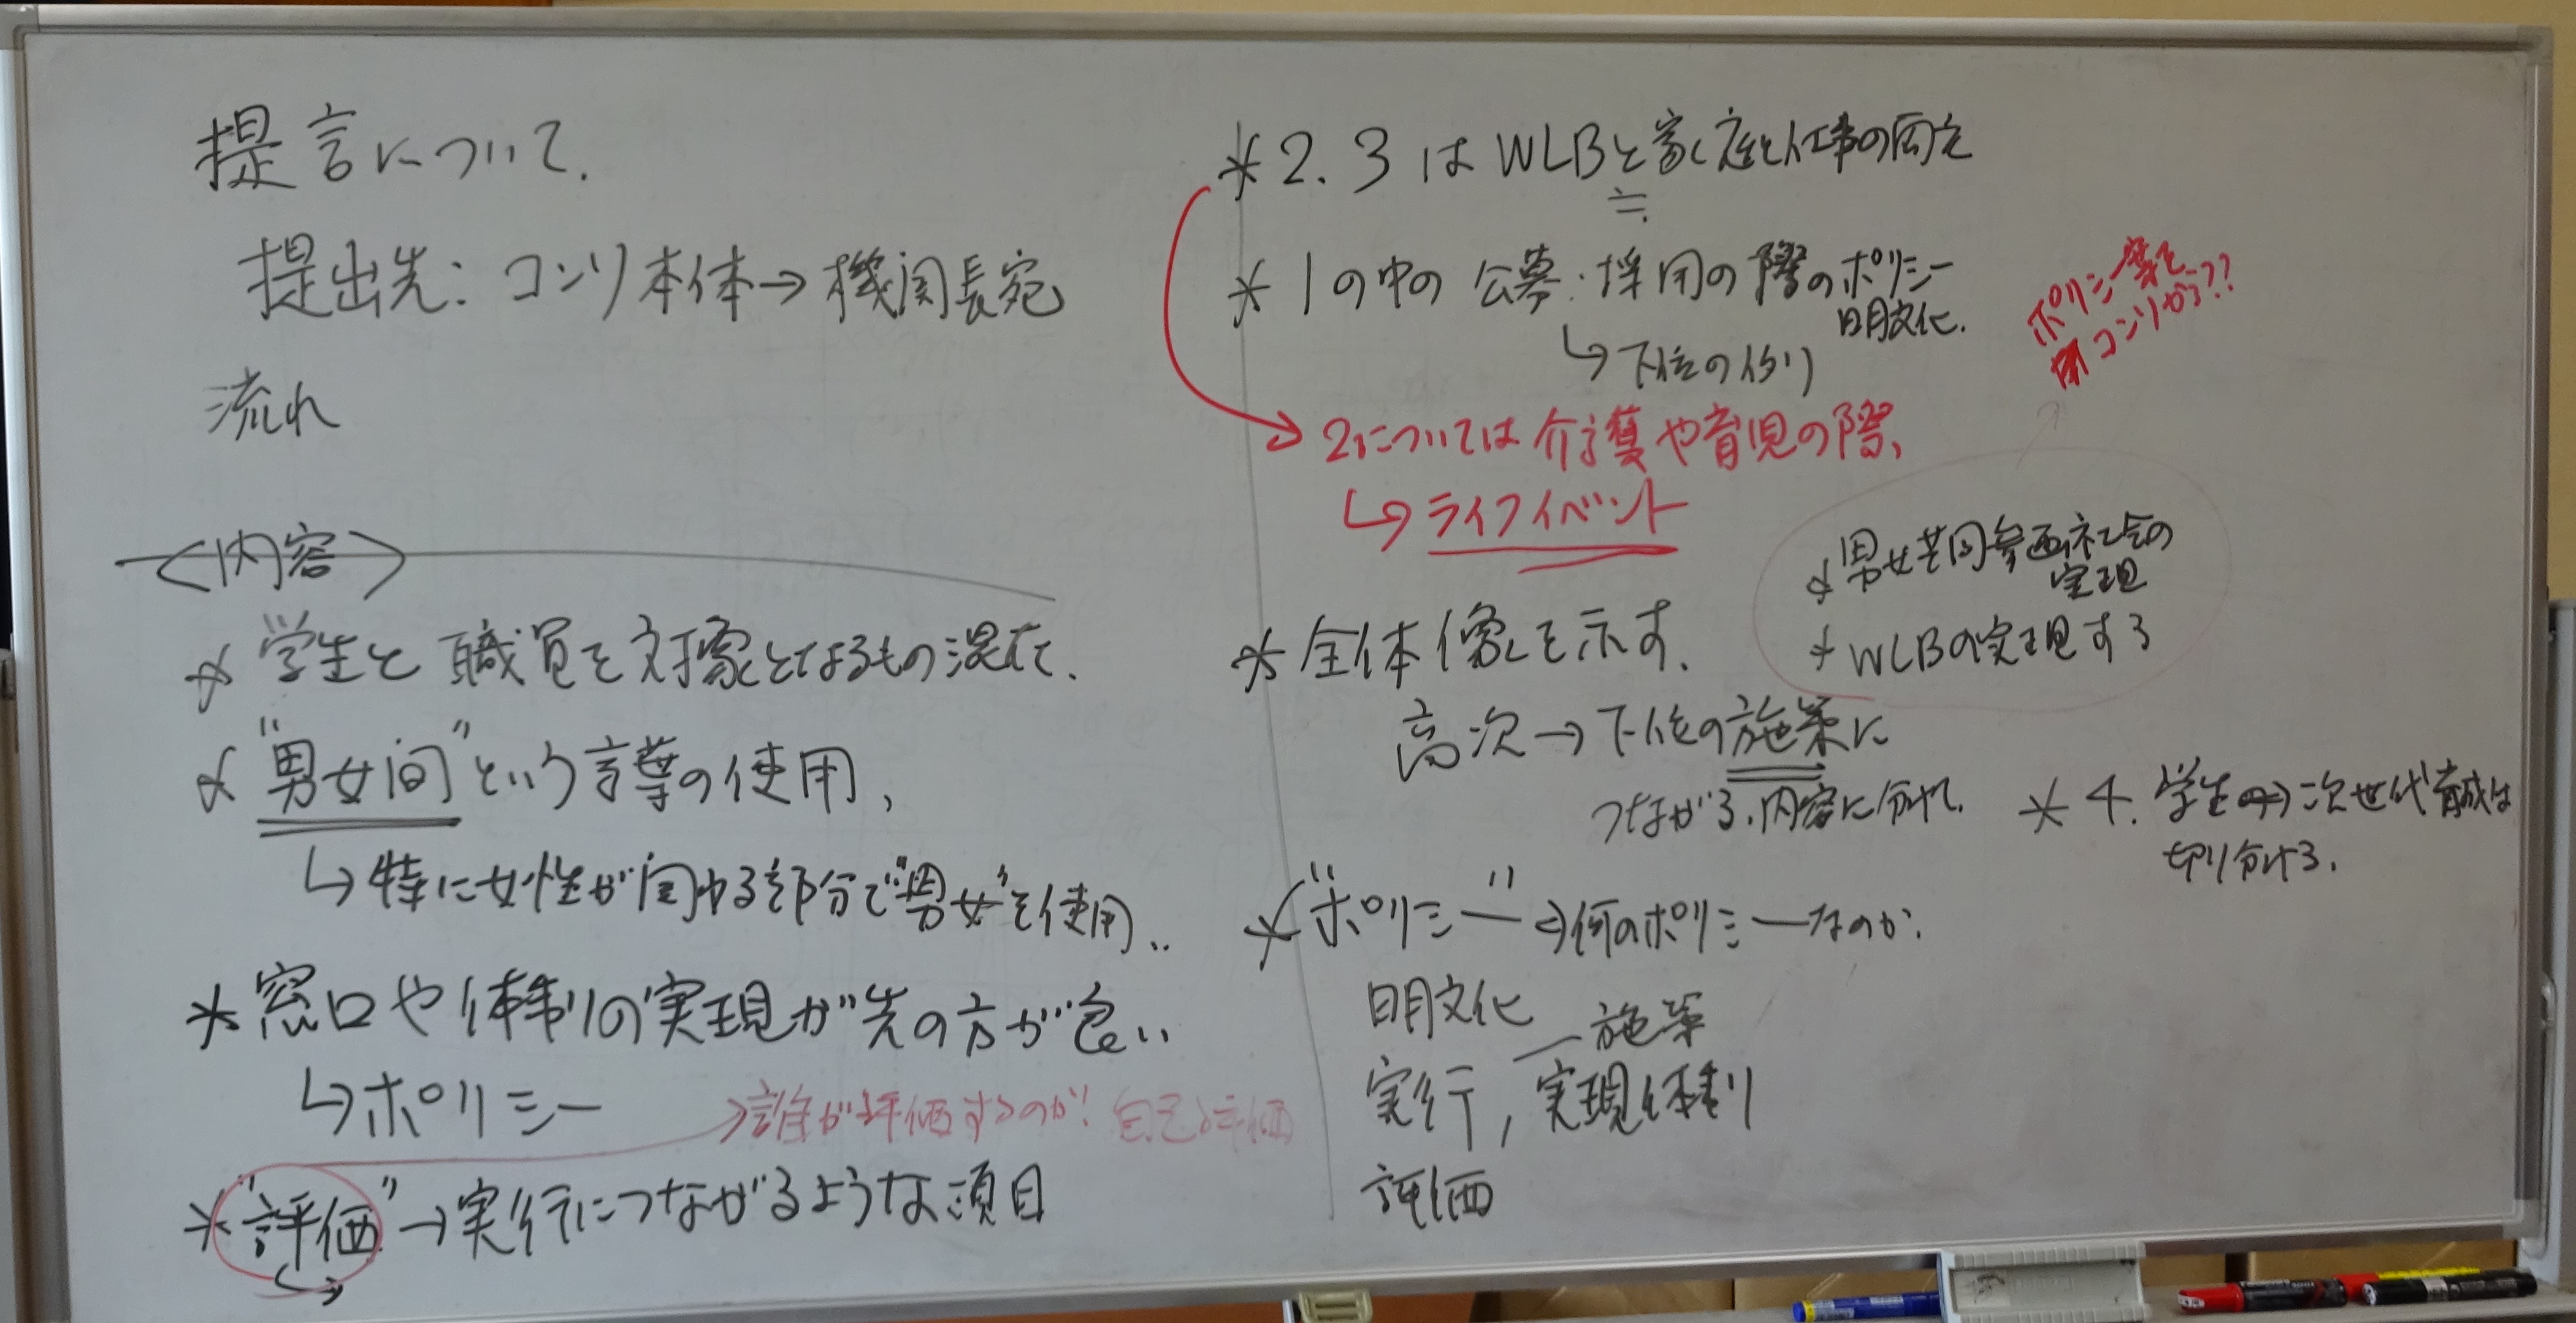 提言について.
提出先: コンソ本体→機関長宛
流れ
<内容>
* 学生と職員を対象となるもの混在.
* "男女間"という言葉の使用、
↳特に女性が関わる部分で"男女"を使用..
* 窓口や体制の実現が先の方が良い
↳ポリシー
→誰が評価するのか? 自己評価
* "評価"→実行につながるような項目
* 2. 3 は WLBと家庭と仕事の両立
≒
* 1の中の 公募・採用の際のポリシー
明文化.
↳下位の例
2については介護や育児の際、
↳ライフイベント
ポリシー案を
コンソから??
* 男女共同参画社会の
実現
* WLBの実現する
* 全体像を示す.
高次→下位の施策に
つながる、内容に分けて.
* 4. 学生⇔次世代育成は
切り分ける.
* "ポリシー"⇒何のポリシーなのか.
明文化
施策
実行, 実現体制
評価